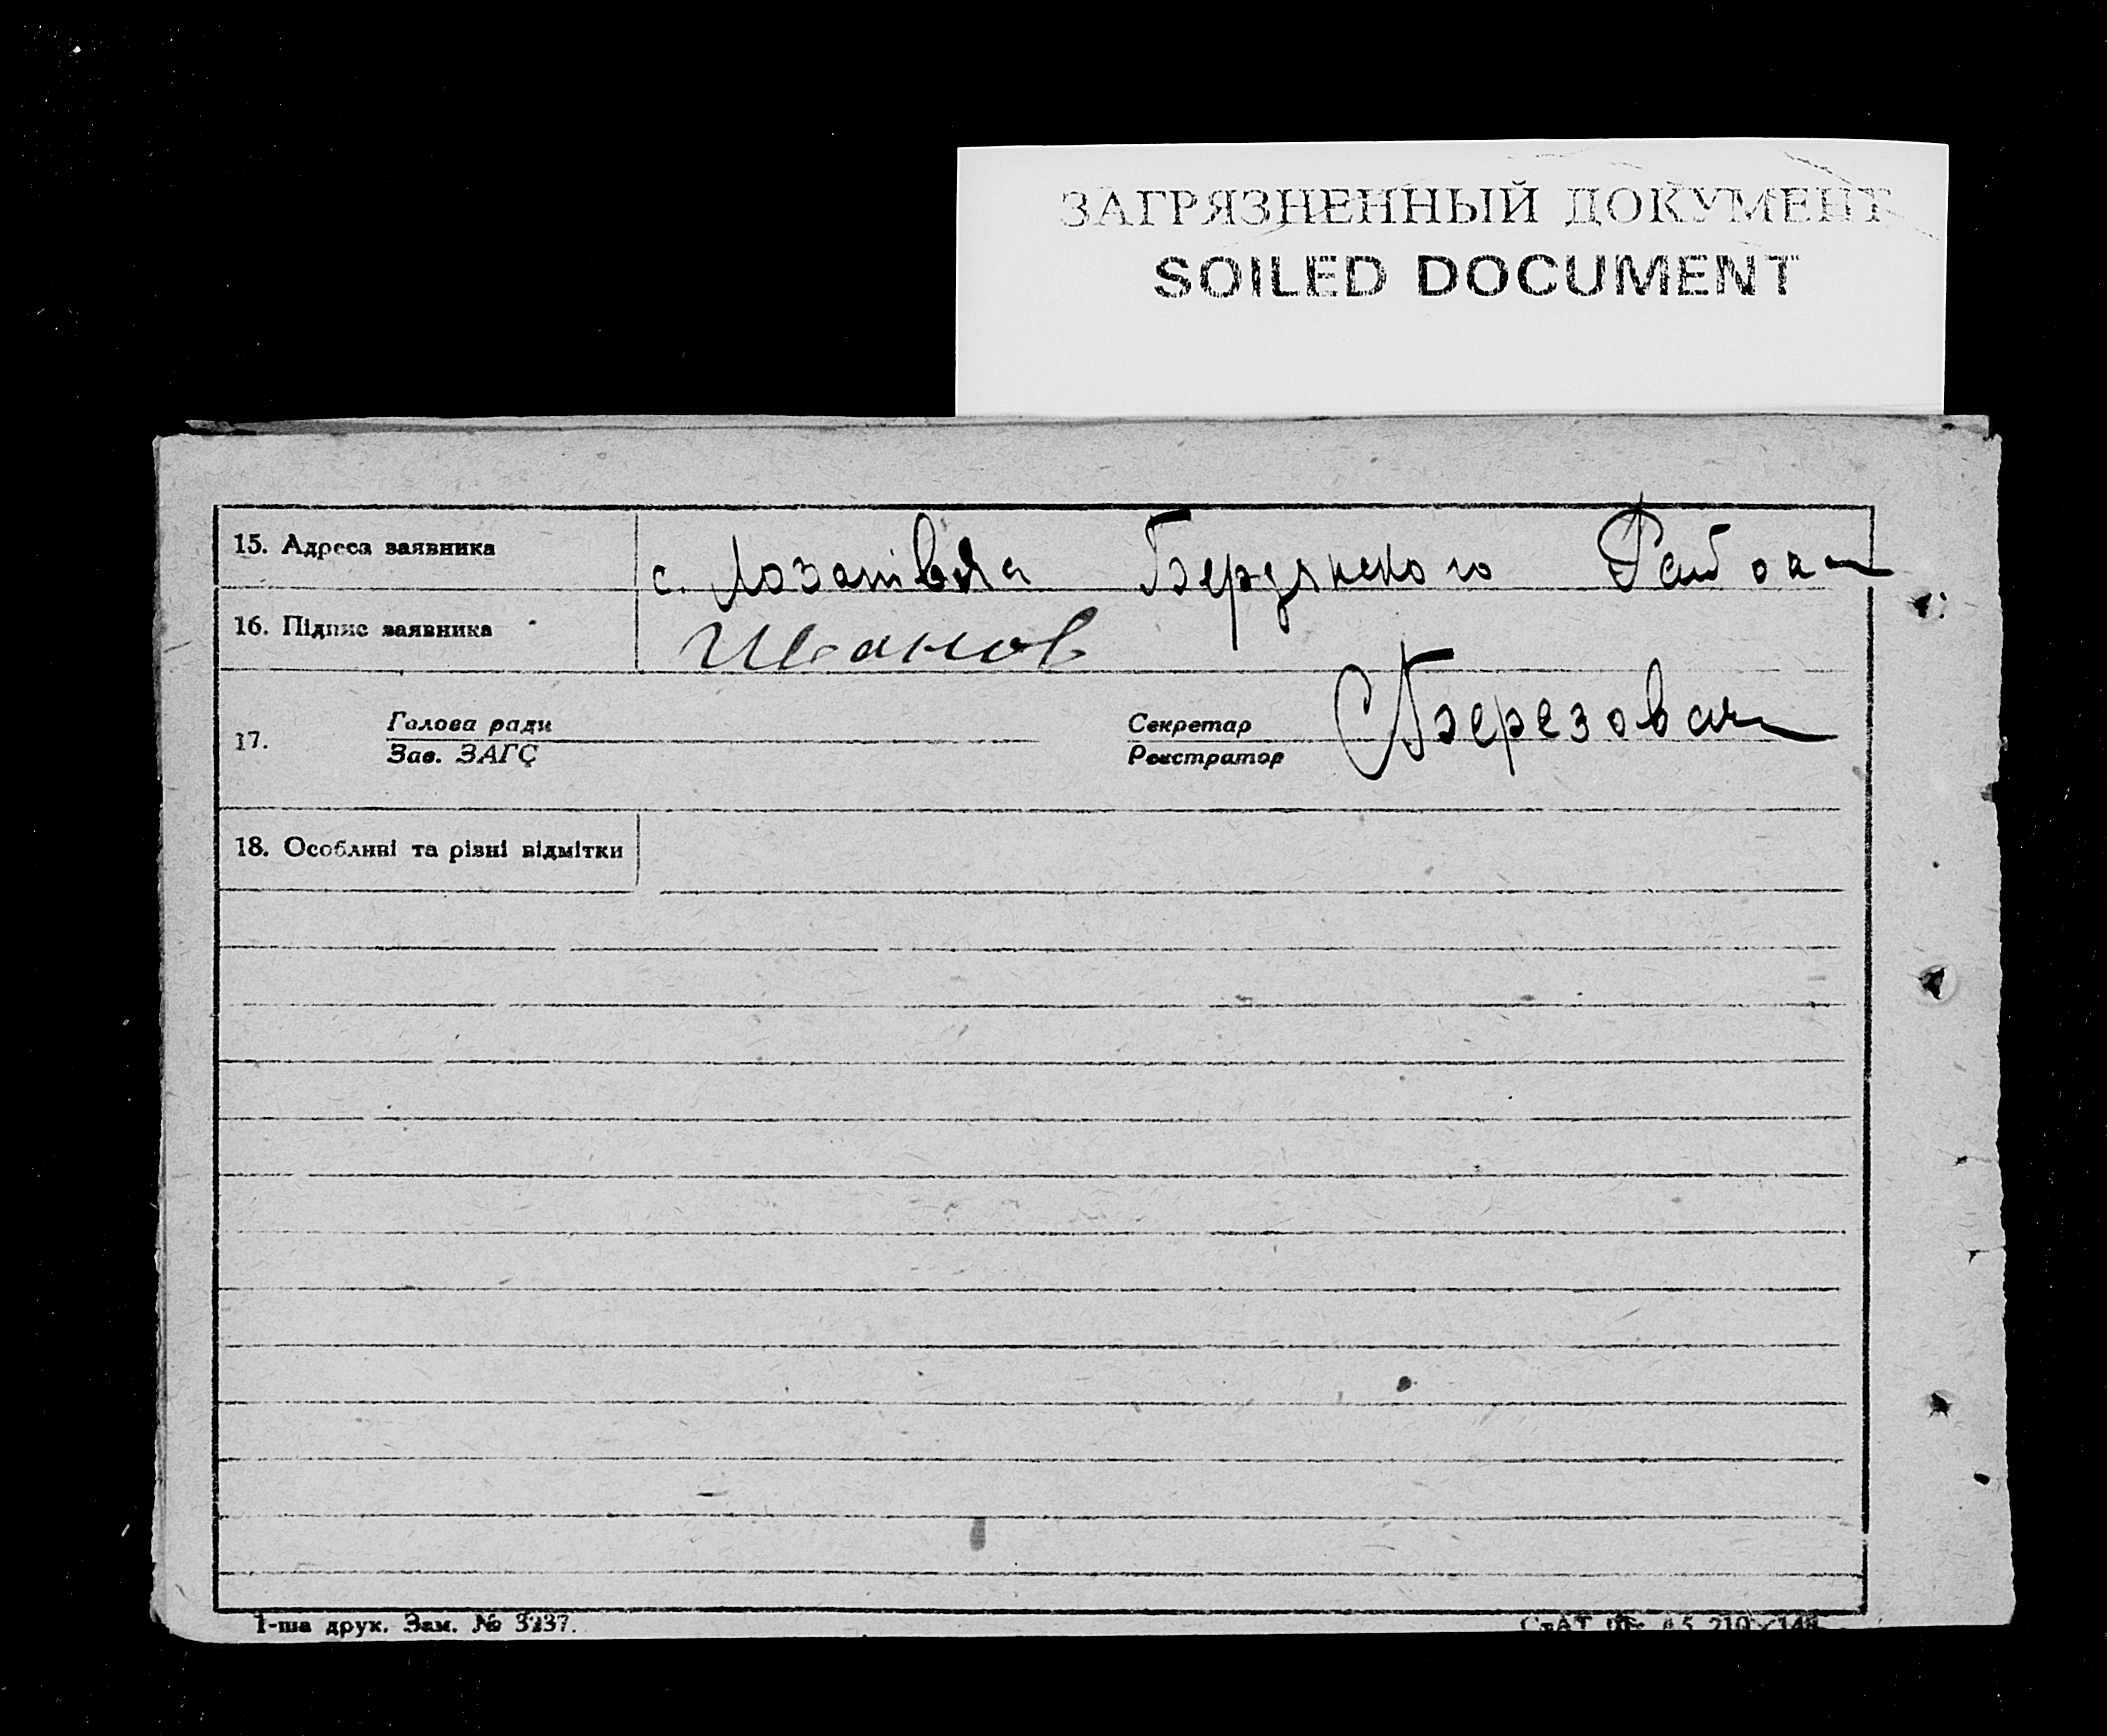 ЗАГРЯЗНЕННЫЙ ДОКУМЕНТ
SOILED DOCUMENT
15. Адреса заявника
с. Лозатівка Бердянского Района
16. Підпис заявника
Иванов
17.
Голова ради
Зав. ЗАГС
Секретар
Реєстратор
Березовая
18. Особливі та різні відмітки
1-ша друк. Зам. № 3237.